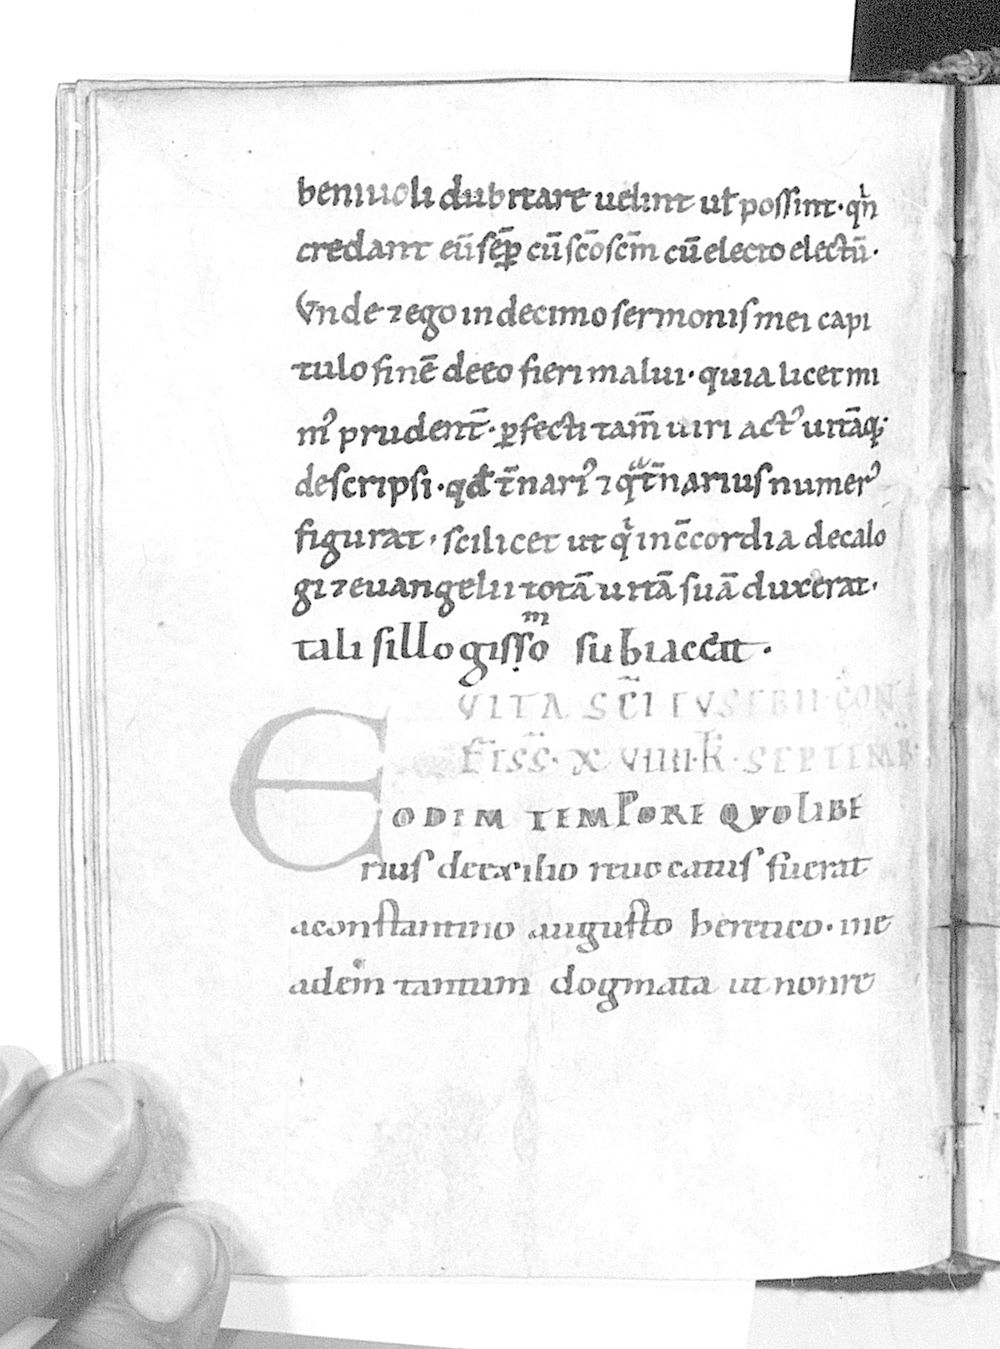 beniuoli dubitare uelint ul̃ possint· qⁱn
credant eū sēp̄ cū sc̄o sc̄m cū electo electū·
Vnde ⁊ ego in decimo sermonis mei capi
tulo finē de eo fieri malui· quia licet mi
nꝰ prudent̄· ꝑfecti tam̄ uiri actꝰ uitāq;
descripsi· qđ t̄nariꝰ ⁊ qᵃt̄narius numerꝰ
figurat, scilicet ut qⁱ in c̄cordia decalo
gi ⁊ euangelii totā uitā suā duxerat,
tali sillogisṣᵐo subiaceat·
VITA SC̄I EVSEBII· CONF
EISS̄· X VIIII· K̄· SEPTEMB̄·
EODEM TEMPORE QVO LIBE
rius de exilio reuocatus fuerat
a constantino augusto heretico· in e
adem tantum dogmata ut non re